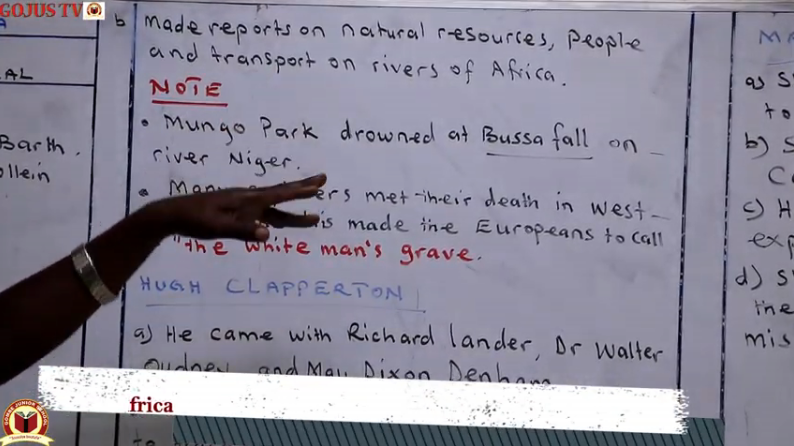 GOJUS TV
b made reports on natural resources, people
and transport on rivers of Africa.
NOTE
• Mungo Park drowned at Bussa fall on
river Niger.
• Many ers met their death in West
this made the Europeans to call
"the white man's grave.
HUGH CLAPPERTON
a) He came with Richard lander, Dr Walter
Oudney and Maj Dixon Denham
frica
AL
Barth.
ollein
MA
a) S
to
b) S
C
c) H
exp
d) S
the
mis
to